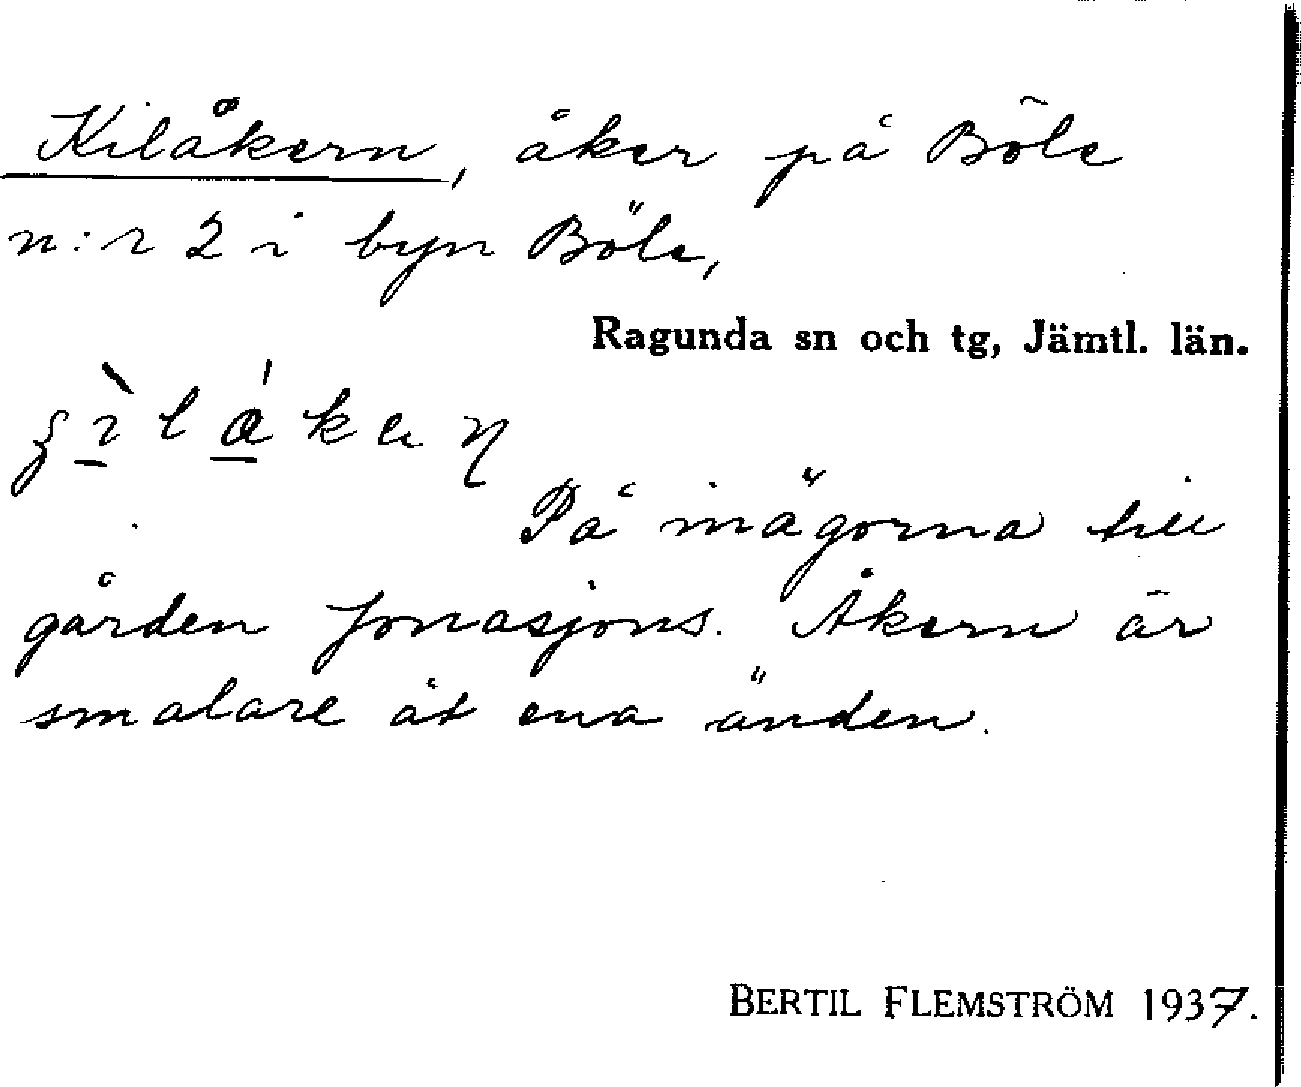 Kilåkern, åker på Böle
n:r 2 i byn Böle,
Ragunda sn och tg, Jämtl. län.
På inägorna till
gården Jonasjons. Åkern är
smalare åt ena änden.
BERTIL FLEMSTRÖM 1937.